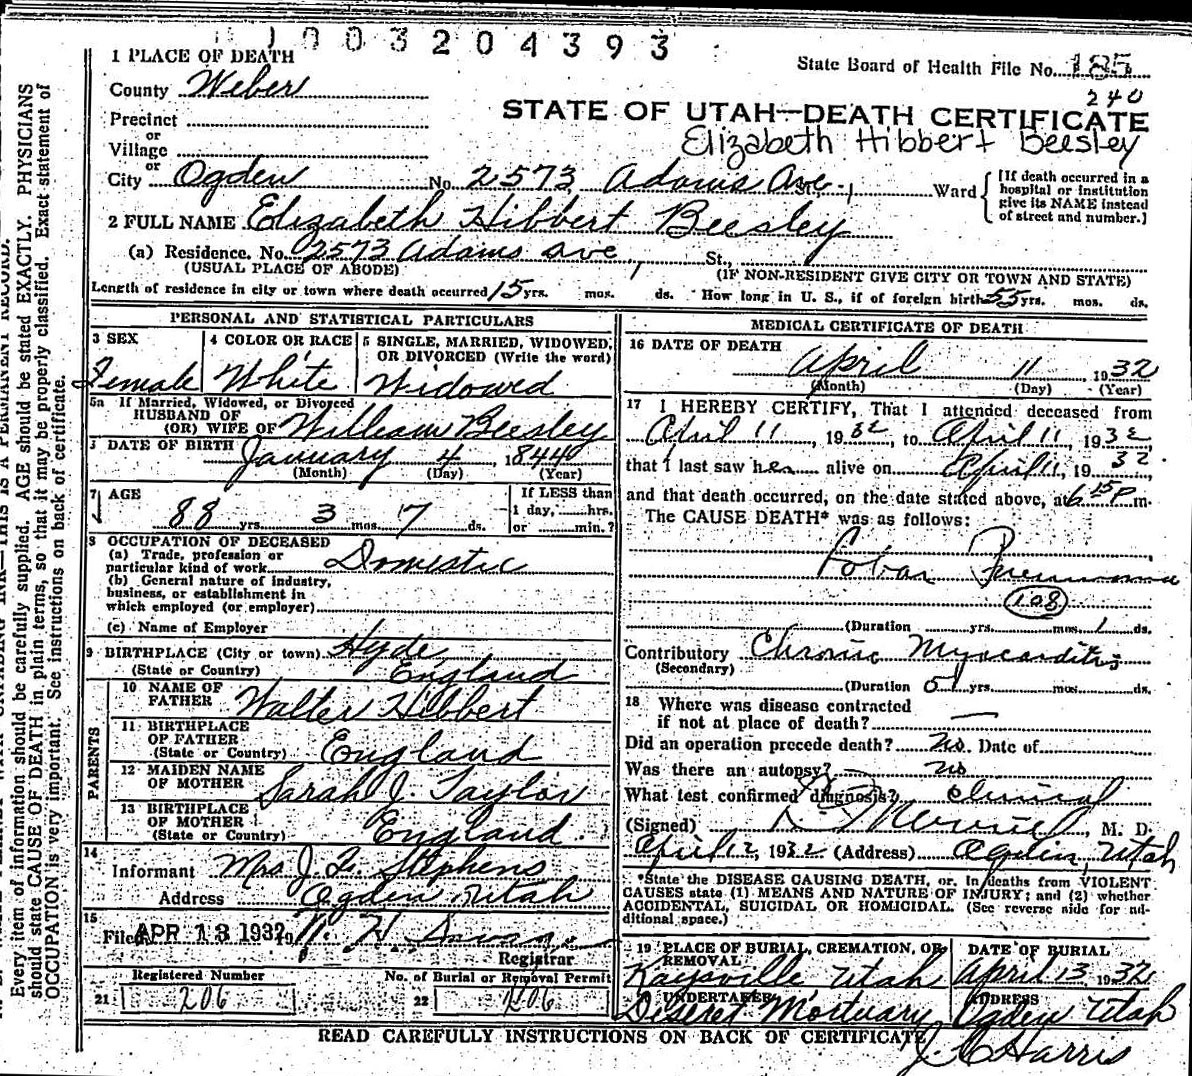 1003204393
1 PLACE OF DEATH
State Board of Health File No. 185
240
County Weber
STATE OF UTAH—DEATH CERTIFICATE
Precinct
Elizabeth Hibbert Beesley
or
Village
or
City Ogden No. 2573 Adams Ave. St., Ward
[If death occurred in a hospital or institution give its NAME instead of street and number.]
2 FULL NAME Elizabeth Hibbert Beesley
(a) Residence. No. 2573 Adams Ave St.,
(USUAL PLACE OF ABODE) (IF NON-RESIDENT GIVE CITY OR TOWN AND STATE)
Length of residence in city or town where death occurred 15 yrs. mos. ds. How long in U. S., if of foreign birth 55 yrs. mos. ds.
PERSONAL AND STATISTICAL PARTICULARS
3 SEX
Female
4 COLOR OR RACE
White
5 SINGLE, MARRIED, WIDOWED, OR DIVORCED (Write the word)
Widowed
5a If Married, Widowed, or Divorced
HUSBAND OF
(OR) WIFE OF William Beesley
DATE OF BIRTH January 4, 1844
(Month) (Day) (Year)
7 AGE
88 yrs. 3 mos. 7 ds.
If LESS than
1 day, hrs.
or min.?
8 OCCUPATION OF DECEASED
(a) Trade, profession or
particular kind of work Domestic
(b) General nature of industry,
business, or establishment in
which employed (or employer)
(c) Name of Employer
9 BIRTHPLACE (City or town) Hyde
(State or Country) England
PARENTS
10 NAME OF
FATHER Walter Hibbert
11 BIRTHPLACE
OF FATHER
(State or Country) England
12 MAIDEN NAME
OF MOTHER Sarah J. Taylor
13 BIRTHPLACE
OF MOTHER
(State or Country) England
14
Informant Mrs. J. L. Stephens
Address Ogden Utah
15
Filed APR 13 1932 19
Registrar
Registered Number
21 206
No. of Burial or Removal Permit
22 206
MEDICAL CERTIFICATE OF DEATH
16 DATE OF DEATH
April 11, 1932
(Month) (Day) (Year)
17 I HEREBY CERTIFY, That I attended deceased from
April 11, 1932, to April 11, 1932
that I last saw her alive on April 11, 1932.
and that death occurred, on the date stated above, at 6 15 P m.
The CAUSE DEATH* was as follows:
Lobar Pneumonia
108
(Duration yrs. mos. 1 ds.
Contributory Chronic Myocarditis
(Secondary)
(Duration 5 yrs. mos. ds.
18 Where was disease contracted
if not at place of death? —
Did an operation precede death? No. Date of
Was there an autopsy? no
What test confirmed diagnosis? Clinical
(Signed) Merrill, M. D.
April 12, 1932 (Address) Ogden, Utah
*State the DISEASE CAUSING DEATH, or. In deaths from VIOLENT
CAUSES state (1) MEANS AND NATURE OF INJURY; and (2) whether
ACCIDENTAL, SUICIDAL OR HOMICIDAL. (See reverse side for additional space.)
19 PLACE OF BURIAL, CREMATION, OR REMOVAL
Kaysville Utah
DATE OF BURIAL
April 13, 1932
UNDERTAKER
Deseret Mortuary
ADDRESS
Ogden Utah
READ CAREFULLY INSTRUCTIONS ON BACK OF CERTIFICATE
J. C. Harris
Every item of information should be carefully supplied. AGE should be stated EXACTLY. PHYSICIANS
should state CAUSE OF DEATH in plain terms, so that it may be properly classified. Exact statement of
OCCUPATION is very important. See instructions on back of certificate.